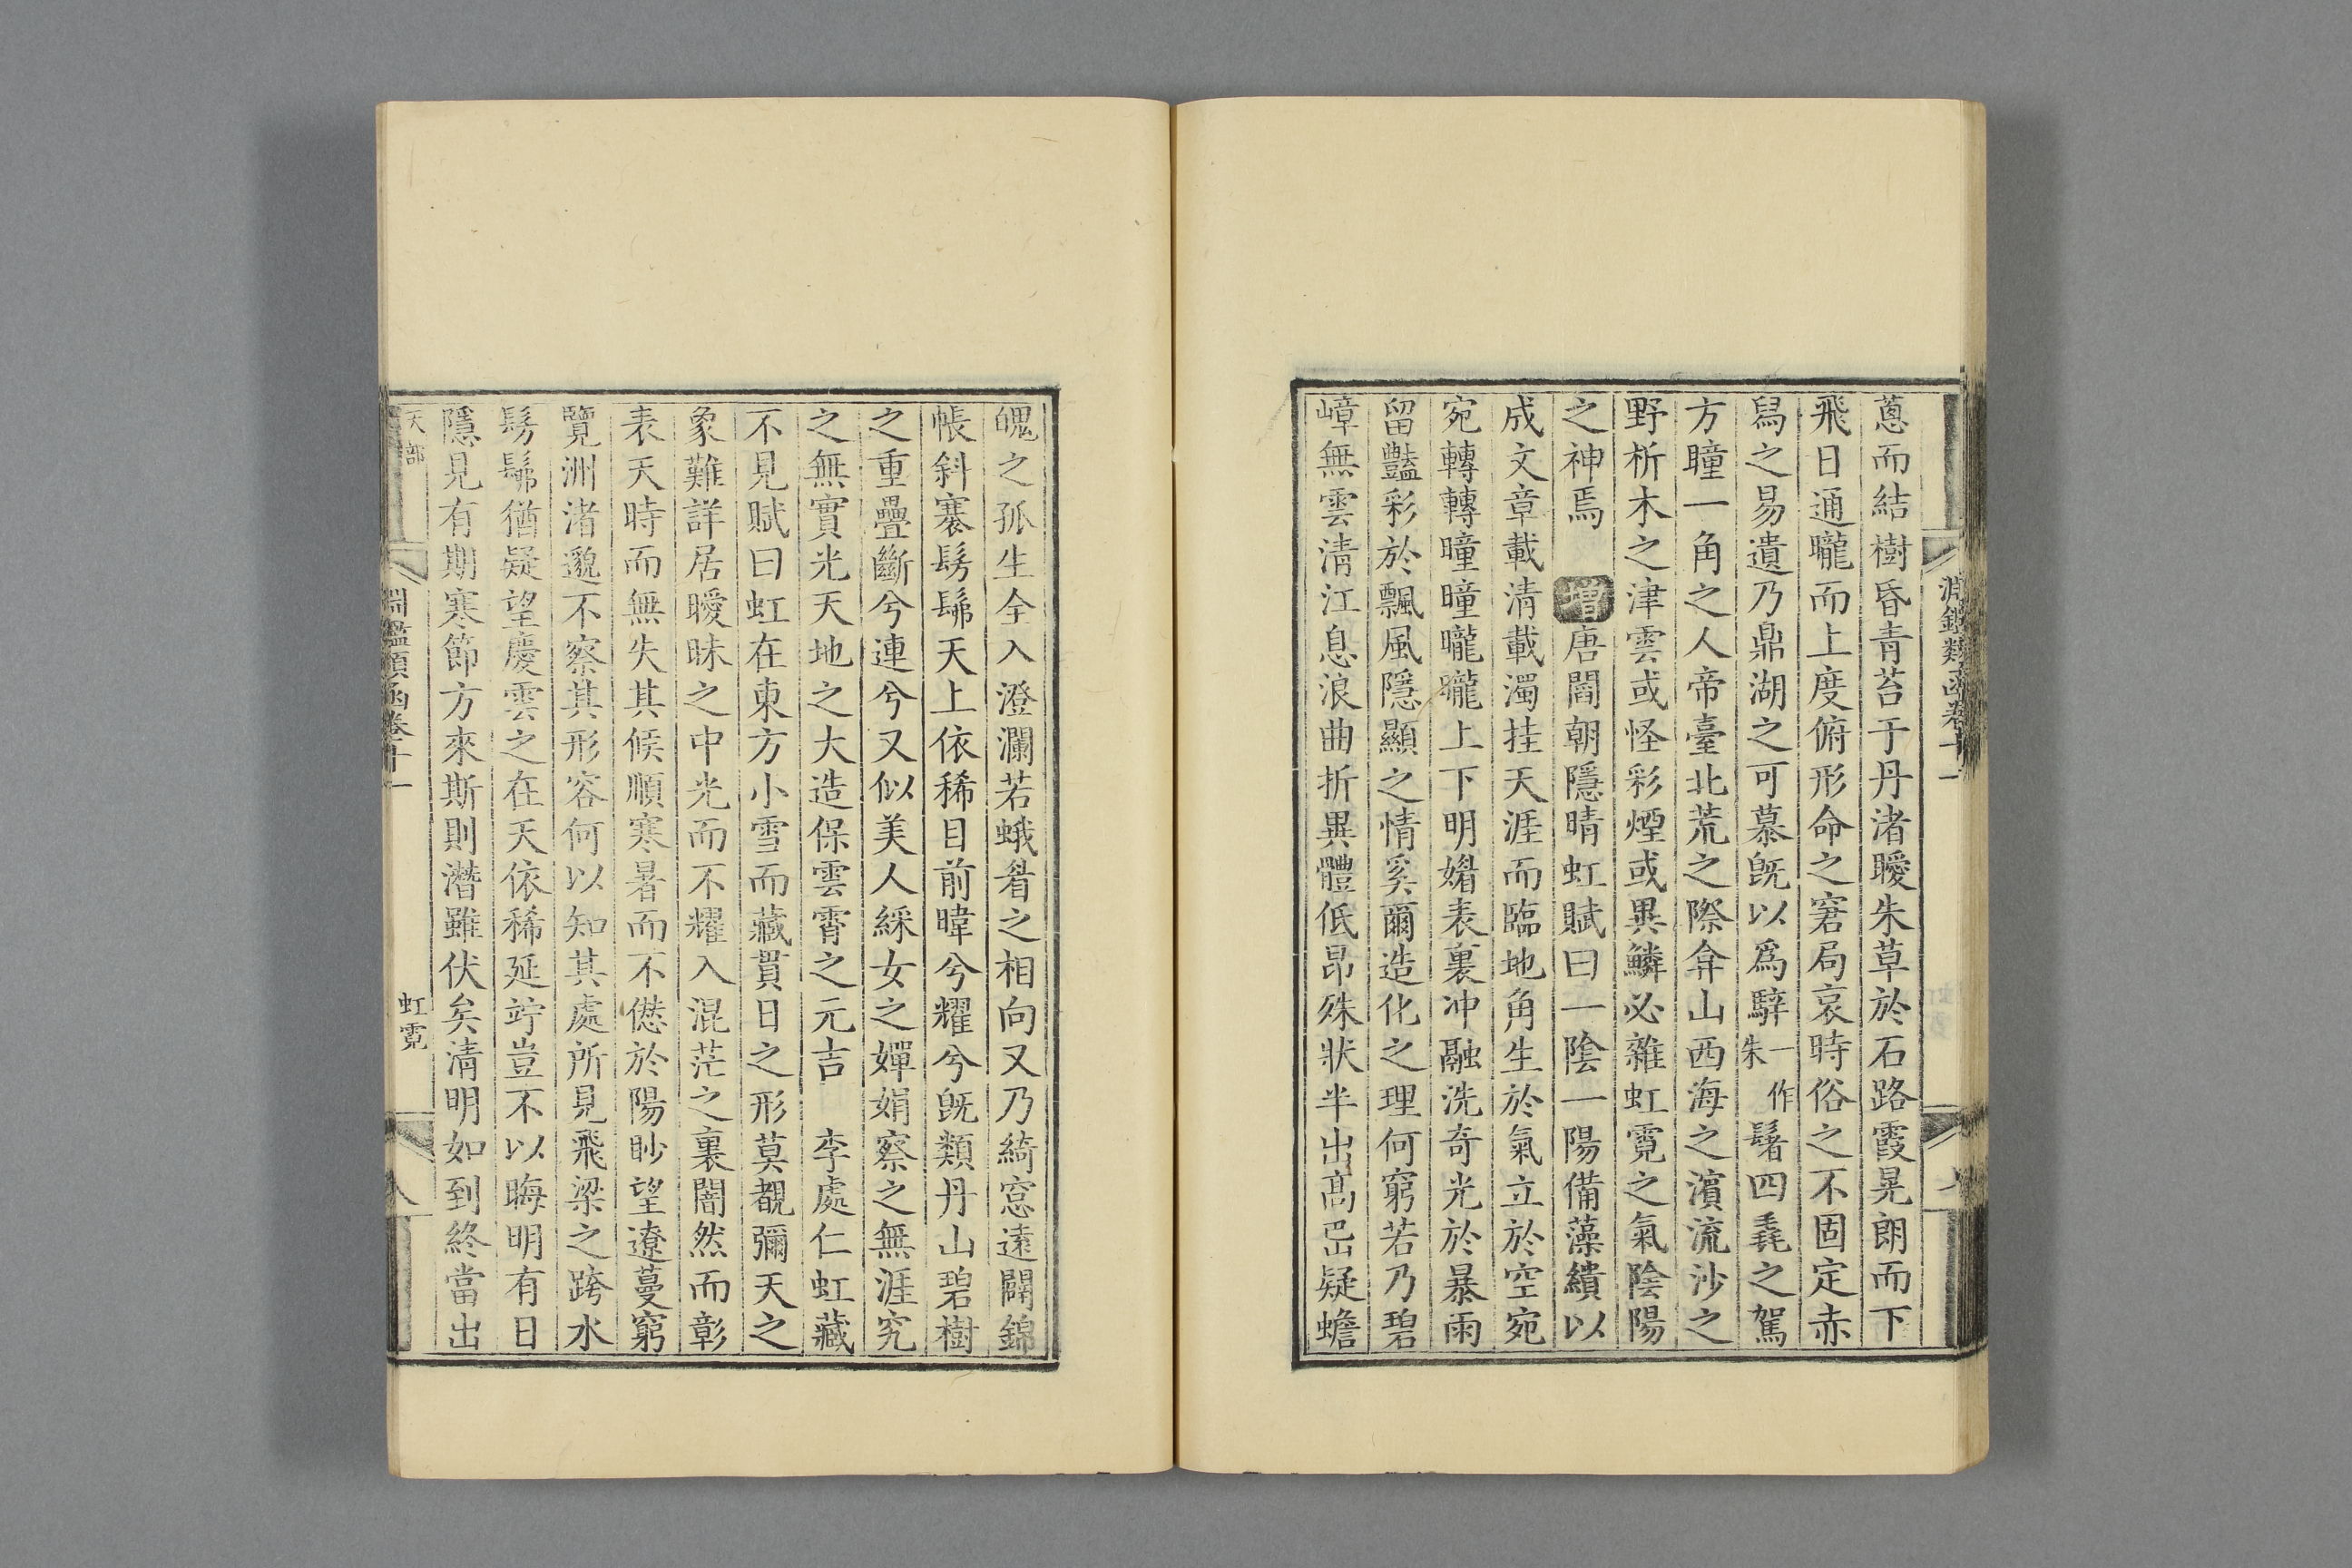 淵鑑類函卷十一
蒽而結樹昏青苔于丹渚曖朱草於石路霞晃朗而下
飛日通曨而上度俯形命之窘局哀時俗之不固定赤
舄之易遺乃鼎湖之可慕旣以爲騂一作朱髾四毳之駕
方瞳一角之人帝臺北荒之際弇山西海之濱流沙之
野析木之津雲或怪彩煙或異鱗必雜虹霓之氣陰陽
之神焉 增唐閻朝隱晴虹賦曰一陰一陽備藻繢以
成文章載清載濁挂天涯而臨地角生於氣立於空宛
宛轉轉曈曈曨曨上下明媚表裏冲融洗奇光於暴雨
留豔彩於飄風隱顯之情奚爾造化之理何窮若乃碧
嶂無雲清江息浪曲折異體低昂殊狀半出高巴疑蟾
魄之孤生全入澄瀾若蛾眉之相向又乃綺窓遠闢錦
帳斜褰髣髴天上依稀目前暐兮耀兮旣類丹山碧樹
之重疊斷兮連兮又似美人綵女之嬋娟察之無涯究
之無實光天地之大造保雲霄之元吉 李處仁虹藏
不見賦曰虹在東方小雪而藏貫日之形莫覩彌天之
象難詳居曖昧之中光而不耀入混茫之裏闇然而彰
表天時而無失其候順寒暑而不愆於陽眇望遼蔓窮
覽洲渚邈不察其形容何以知其處所見飛梁之跨水
髣髴猶疑望慶雲之在天依稀延竚豈不以晦明有日
隱見有期寒節方來斯則潛雖伏矣清明如到終當出
天部
淵鑑類函卷十一
虹霓
八